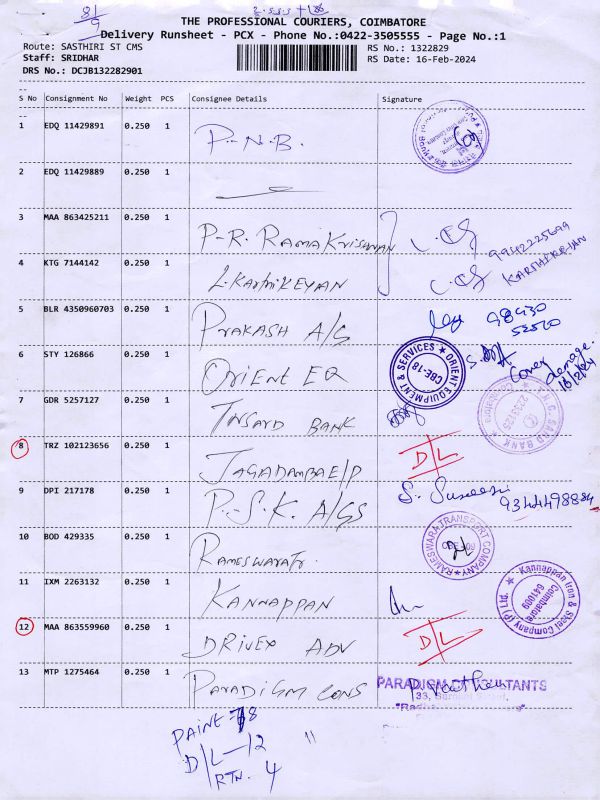 8/9
THE PROFESSIONAL COURIERS, COIMBATORE
Delivery Runsheet - PCX - Phone No.:0422-3505555 - Page No.:1
Route: SASTHIRI ST CMS
Staff: SRIDHAR
DRS No.: DCJB132282901
RS No.: 1322829
RS Date: 16-Feb-2024
S No Consignment No Weight PCS Consignee Details Signature
1 EDQ 11429891 0.250 1 P.N.B.
2 EDQ 11429889 0.250 1
3 MAA 863425211 0.250 1 P-R. RAMAKrisHnAN
9942225699
4 KTG 7144142 0.250 1 L.KARTHIKEYAN
KARTHIKEYAN
5 BLR 4350960703 0.250 1 PRAKASH A/G
98430
52520
6 STY 126866 0.250 1 ORIENT EQ
ORIENT EQUIPMENT & SERVICES ★ CBE-18
Cover damage
16/2/24
7 GDR 5257127 0.250 1 BANK
8 TRZ 102123656 0.250 1 JAGADAMBA E/P D/L
9 DPI 217178 0.250 1 P.S.K. A/GS
9344498884
10 BOD 429335 0.250 1 RAMESWARA Tr.
RAMESWARA TRANSPORT COMPANY ★
11 IXM 2263132 0.250 1 KANNAPPAN
★ Kannappan Iron & Steel Company (P) Ltd. Coimbatore 641009
12 MAA 863559960 0.250 1 DRIVEX ADV D/L
13 MTP 1275464 0.250 1 PARADIGM CONS
PARADIGM CONSULTANTS
D/L-12
RTN. 4